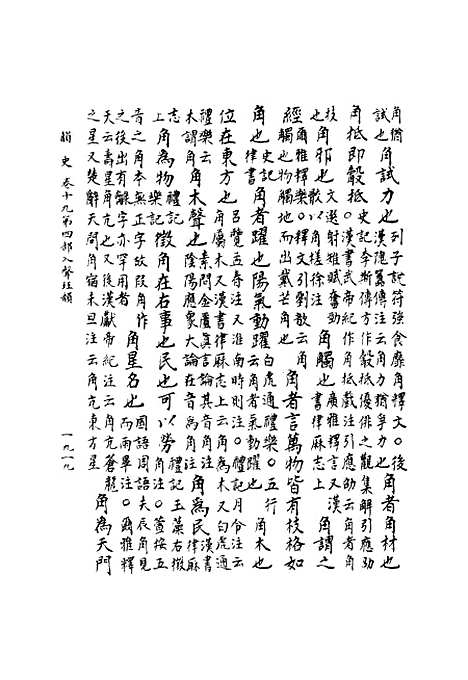 角猶試也角試力也列子說符強食靡角釋文。後漢隗囂傳注云角力猶爭力也角者角材也
角抵即觳抵史記李斯傳方作觳抵優俳之觀集解引應劭。漢書武帝紀作角抵戲注引應劭云角者角
技也角邪也文選射雉賦奮勁骹以角槎徐注角觸也廣雅釋言又漢書律厤志上角謂之
經爾雅釋樂。釋文引劉歆云角觸也物觸地而出戴芒角也角者言萬物皆有枝格如
角也史記律書角者躍也陽氣動躍白虎通禮樂。五行云角者氣動躍也角木也
位在東方也呂覽孟春注又淮南時則注。禮記月令注云角屬木又漢書律厤志上云角為木又白虎通
禮樂云木謂角角木聲也素問金匱真言論其音角注陰陽應象大論在音為角注角為民漢書律厤
志上角為物禮記樂記徵角在右事也民也可以勞禮記玉藻右徵角注。萱按五
音之角本無正字故段角作之後出有觮字亦罕用者角星名也國語周語夫辰角見而雨畢注。爾雅釋
天云壽星角亢也又後漢獻帝紀注云角亢蒼龍之星又楚辭天問角宿未旦注云角亢東方星角為天門
韻史 卷十九第四部入聲玨韻 一九一九